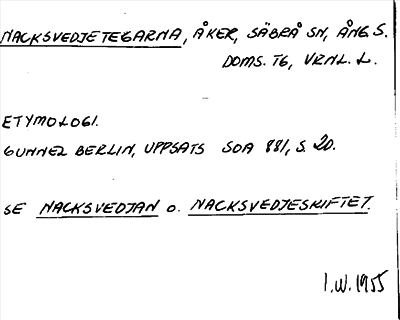 NACKSVEDJETEGARNA, ÅKER, SÄBRÅ SN, ÅNG S.
DOMS. TG, VRNL. L.
ETYMOLOGI.
GUNNEL BERLIN, UPPSATS SOA 881, S. 20.
SE NACKSVEDJAN O. NACKSVEDJESKIFTET.
I.W. 1955